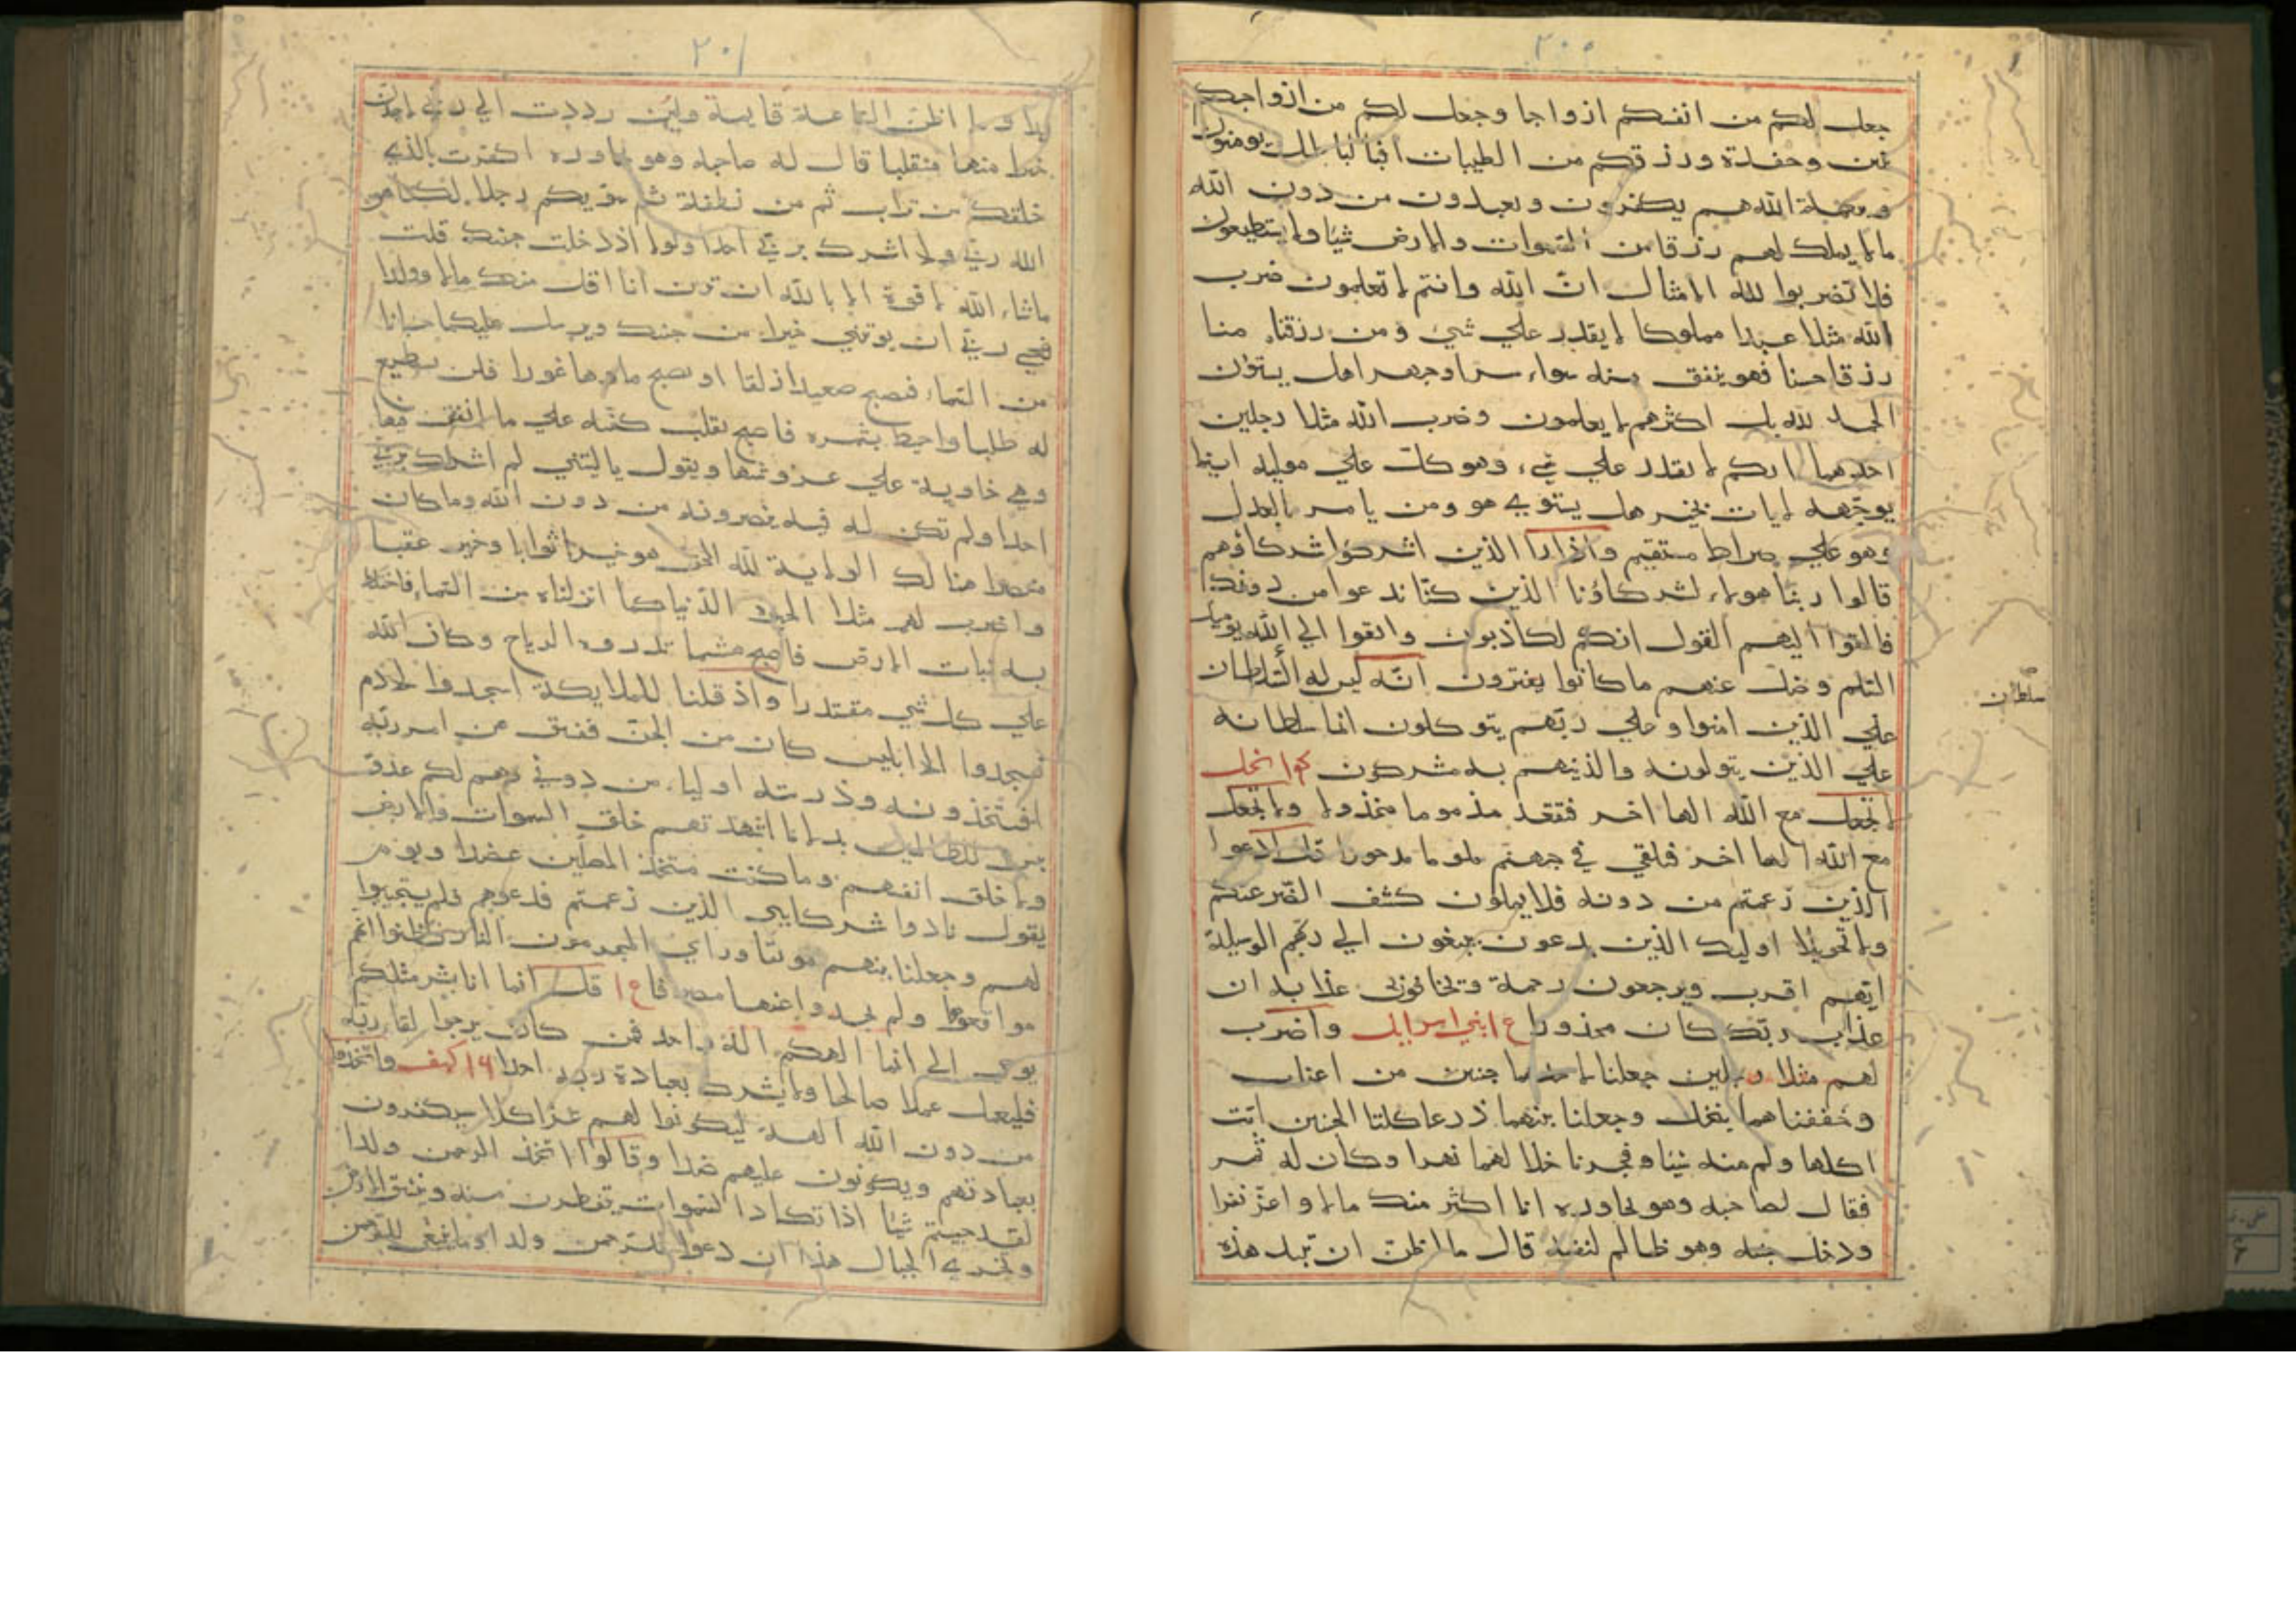 ٢٠٠
جعل لكم من انفسكم ازواجا وجعل لكم من ازواجكم
بنين وحفدة ورزقكم من الطيبات افبالباطل يومنون
وبنعمة الله هم يكفرون ويعبدون من دون الله
مالا يملك لهم رزقا من السموات والارض شيئا ولا يستطيعون
فلا تضربوا لله الامثال ان الله وانتم لا تعلمون ضرب
الله مثلا عبدا مملوكا لا يقدر علي شي ومن رزقناه منا
رزقا حسنا فهو ينفق منه سواء سرا وجهرا هل يستون
الحمد لله بل اكثرهم لا يعلمون وضرب الله مثلا رجلين
احدهما ابكم لا يقدر علي شيء وهو كل علي موليه اينما
يوجهه لايات بخير هل يستوي هو ومن يامر بالعدل
وهو علي صراط مستقيم واذا را الذين اشركوا شركاؤهم
قالوا ربنا هولاء شركاؤنا الذين كنا ندعوا من دونك
فالقوا اليهم القول انكم لكاذبون والقوا الي الله يوميذ
السلم وضل عنهم ما كانوا يفترون انه ليس له السلطان
سلطان
علي الذين امنوا وعلي ربهم يتوكلون انما سلطانه
علي الذين يتولونه والذينهم به مشركون النحل
لا تجعل مع الله الها اخر فتقعد مذموما مخذولا ولا تجعل
مع الله الها اخر فتلقي في جهنم ملوما مدحورا قل ادعوا
الذين زعمتم من دونه فلا يملكون كشف الضر عنكم
ولا تحويلا اوليك الذين يدعون يبتغون الي ربهم الوسيلة
ايهم اقرب ويرجعون رحمة وتخافون عذابه ان
عذاب ربك كان محذورا ع ابني اسرايل واضرب
لهم مثلا رجلين جعلنا لاحدهما جنتين من اعناب
وحففناهما بنخل وجعلنا بينهما زرعا كلتا الجنتين اتت
اكلها ولم منه شيئا وفجرنا خلالهما نهرا وكان له ثمر
فقال لصاحبه وهو يحاوره انا اكثر منك مالا واعز نفرا
ودخل جنته وهو ظالم لنفسه قال ما اظن ان تبيد هذه
٢٠١
ابدا وما اظن الساعة قايمة ولين رددت الي ربي لاجدن
خيرا منها منقلبا قال له صاحبه وهو يحاوره اكفرت بالذي
خلقك من تراب ثم من نطفة ثم سويكم رجلا لكنا هو
الله ربي ولا اشرك بربي احدا ولولا اذ دخلت جنتك قلت
ماشاء الله لا قوة الا بالله ان ترن انا اقل منك مالا وولدا
فعسي ربي ان يوتيني خيرا من جنتك ويرسل عليكما حسبانا
من السماء فتصبح صعيدا زلقا او يصبح ماوها غورا فلن تستطيع
له طلبا واحيط بثمره فاصبح يقلب كفيه علي ما انفق فيها
وهي خاوية علي عروشها ويقول ياليتني لم اشرك بربي
احدا ولم تكن له فية ينصرونه من دون الله وما كان
منتصرا هنالك الولاية لله الحق هو خير ثوابا وخير عقبا
واضرب لهم مثلا الحيوة الدنيا كما انزلناه من السماء فاختلط
به نبات الارض فاصبح هشيما تذروه الرياح وكان الله
علي كل شي مقتدرا واذ قلنا للملايكة اسجدوا لادم
فسجدوا الا ابليس كان من الجن ففسق عن امر ربه
افتتخذونه وذريته اوليا من دوني وهم لكم عدو
بيس للظالمين بدلا ما اشهدتهم خلق السموات والارض
ولا خلق انفسهم وما كنت متخذ المضلين عضدا ويوم
يقول نادوا شركايي الذين زعمتم فدعوهم فلم يستجيبوا
لهم وجعلنا بينهم موبقا وراي المجرمون النار فظنوا انهم
مواقعوها ولم يجدوا عنها مصرفا ع ا قل انما انا بشر مثلكم
يوحي الي انما الهكم اله واحد فمن كان يرجوا لقا ربه
فليعمل عملا صالحا ولا يشرك بعبادة ربه احدا ١٦ كهف واتخذوا
من دون الله الهة ليكونوا لهم عزا كلا سيكفرون
بعبادتهم ويكونون عليهم ضدا وقالوا اتخذ الرحمن ولدا
لقد جيتم شيئا اذا تكاد السموات يتفطرن منه وتنشق الارض
وتخر الجبال هذا ان دعوا للرحمن ولدا وما ينبغي للرحمن